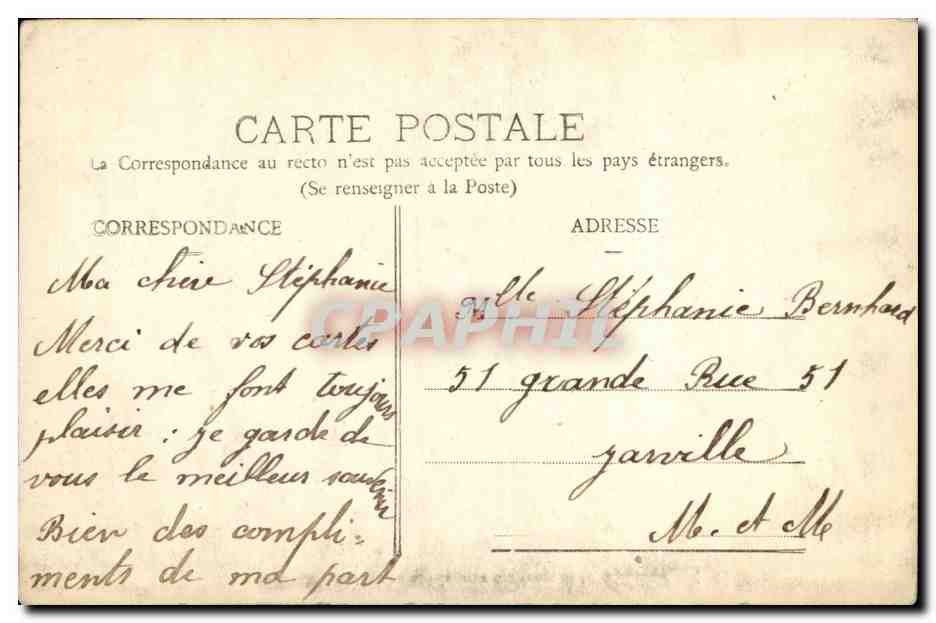 CARTE POSTALE
La Correspondance au recto n'est pas acceptée par tous les pays étrangers.
(Se renseigner à la Poste)
CORRESPONDANCE
Ma chère Stéphanie
Merci de vos cartes
elles me font toujours
plaisir : je garde de
vous le meilleur souvenir
Bien des compli=
ments de ma part
ADRESSE
Mlle Stéphanie Bernhard
51 grande Rue 51
Jarville
M. et M
CPAPHIL